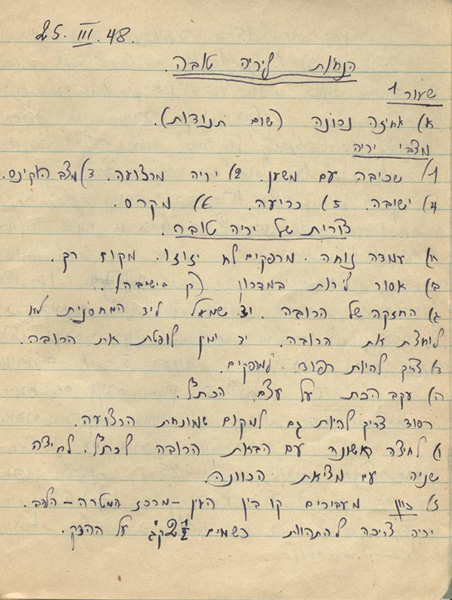 25. III. 48.
הנחות ליריה טובה.
שעור 1
א) אחיזה נכונה (שום תנודות).
מצבי יריה
1) שכיבה עם משען. 2) יריה מרצועה. 3) מצב האקינס.
4) ישיבה. 5) כריעה. 6) מקרס.
צורות של יריה טובה.
א) עמדה נוחה. מרפקים לא יזוזו. מקום רך.
ב) אסור לירות במדרון (רק בישיבה).
ג) החזקה של הרובה. יד שמאל ליד המחסנית לא
לוחצת את הרובה. יד ימין לופתת את הרובה.
ד) צריך להיות רפוד למרפקים.
ה) עקב הכת על עצם הכתף.
רפוד צריך להיות גם למקום שמונחת הרצועה.
ו) לחיצה ראשונה עם הבאת הרובה לכתף. לחיצה
שניה עם מציאת הכוונה.
ז) כוון מעבירים קו בין העין – מרכז המטרה – הלהב.
יריה צריכה להתהוות כשמים 2½ ק"ג על ההדק.